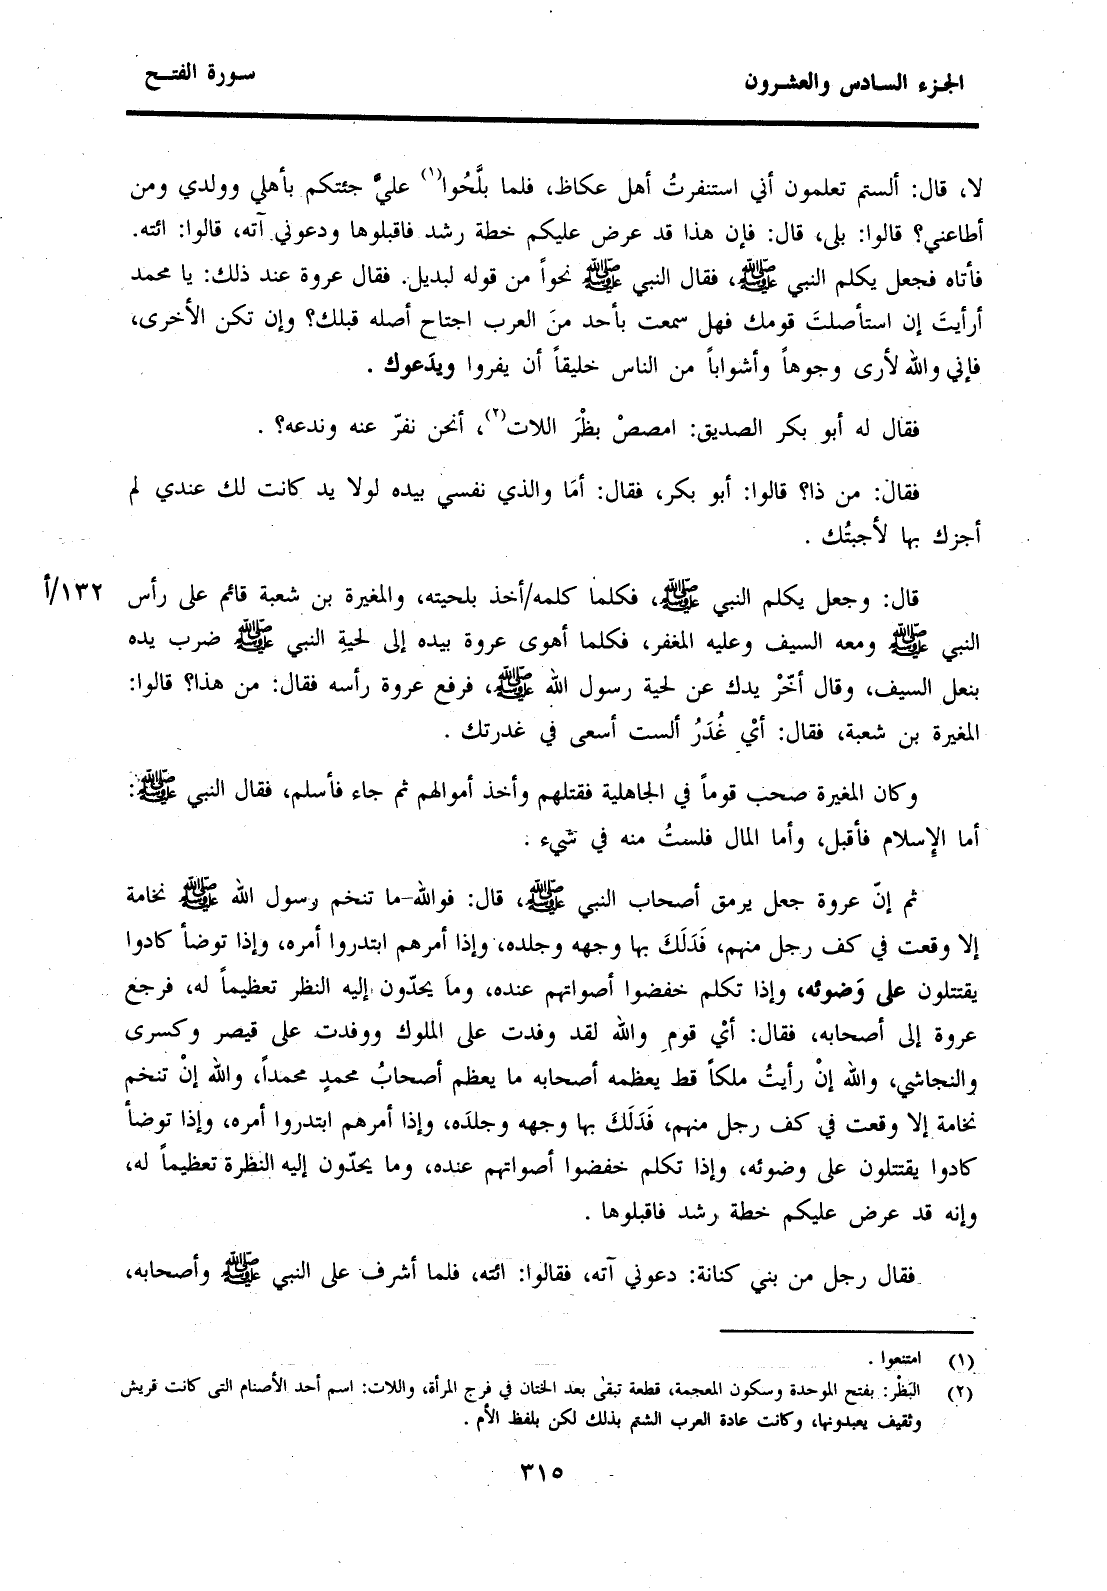 الجزء السادس والعشرون
سورة الفتح
لا، قال: ألستم تعلمون أني استنفرتُ أهل عكاظ، فلما بلَّحُوا(١) عليَّ جئتكم بأهلي وولدي ومن
أطاعني؟ قالوا: بلى، قال: فإن هذا قد عرض عليكم خطة رشد فاقبلوها ودعوني آته، قالوا: ائته.
فأتاه فجعل يكلم النبي ﷺ، فقال النبي ﷺ نحواً من قوله لبديل. فقال عروة عند ذلك: يا محمد
أرأيتَ إن استأصلتَ قومك فهل سمعت بأحد منَ العرب اجتاح أصله قبلك؟ وإن تكن الأخرى،
فإني والله لأرى وجوهاً وأشواباً من الناس خليقاً أن يفروا ويدَعوك .
فقال له أبو بكر الصديق: امصصْ بظْرَ اللات(٢)، أنحن نفرّ عنه وندعه؟ .
فقال: من ذا؟ قالوا: أبو بكر، فقال: أمَا والذي نفسي بيده لولا يد كانت لك عندي لم
أجزك بها لأجبتُك .
قال: وجعل يكلم النبي ﷺ، فكلما كلمه/أخذ بلحيته، والمغيرة بن شعبة قائم على رأس ١٣٢/أ
النبي ﷺ ومعه السيف وعليه المغفر، فكلما أهوى عروة بيده إلى لحيةِ النبي ﷺ ضرب يده
بنعل السيف، وقال أخّرْ يدك عن لحية رسول الله ﷺ، فرفع عروة رأسه فقال: من هذا؟ قالوا:
المغيرة بن شعبة، فقال: أيْ غُدَرُ ألست أسعى في غدرتك .
وكان المغيرة صحب قوماً في الجاهلية فقتلهم وأخذ أموالهم ثم جاء فأسلم، فقال النبي ﷺ:
أما الإسلام فأقبل، وأما المال فلستُ منه في شيء .
ثم إنّ عروة جعل يرمق أصحاب النبي ﷺ، قال: فوالله ما تنخم رسول الله ﷺ نخامة
إلا وقعت في كف رجل منهم، فَدَلَكَ بها وجهه وجلده، وإذا أمرهم ابتدروا أمره، وإذا توضأ كادوا
يقتتلون على وَضوئه، وإذا تكلم خفضوا أصواتهم عنده، وما يحدّون إليه النظر تعظيماً له، فرجع
عروة إلى أصحابه، فقال: أيْ قوم والله لقد وفدت على الملوك ووفدت على قيصر وكسرى
والنجاشي، والله إنْ رأيتُ ملكاً قط يعظمه أصحابه ما يعظم أصحابُ محمدٍ محمداً، والله إنْ تنخم
نخامة إلا وقعت في كف رجل منهم، فَدَلَكَ بها وجهه وجلدَه، وإذا أمرهم ابتدروا أمره، وإذا توضأ
كادوا يقتتلون على وضوئه، وإذا تكلم خفضوا أصواتهم عنده، وما يحدّون إليه النظرة تعظيماً له،
وإنه قد عرض عليكم خطة رشد فاقبلوها .
فقال رجل من بني كنانة: دعوني آته، فقالوا: ائته، فلما أشرف على النبي ﷺ وأصحابه،
(١) امتنعوا .
(٢) البَظْر: بفتح الموحدة وسكون المعجمة، قطعة تبقى بعد الختان في فرج المرأة، واللات: اسم أحد الأصنام التي كانت قريش
وثقيف يعبدونها، وكانت عادة العرب الشتم بذلك لكن بلفظ الأم .
٣١٥